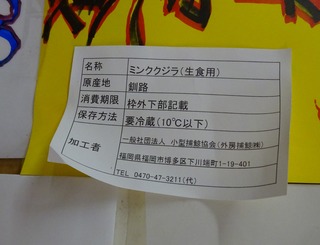 名称 ミンククジラ(生食用)
原産地 釧路
消費期限 枠外下部記載
保存方法 要冷蔵(10℃以下)
加工者 一般社団法人 小型捕鯨協会(外房捕鯨㈱)
福岡県福岡市博多区下川端町1-19-401
TEL 0470-47-3211(代)